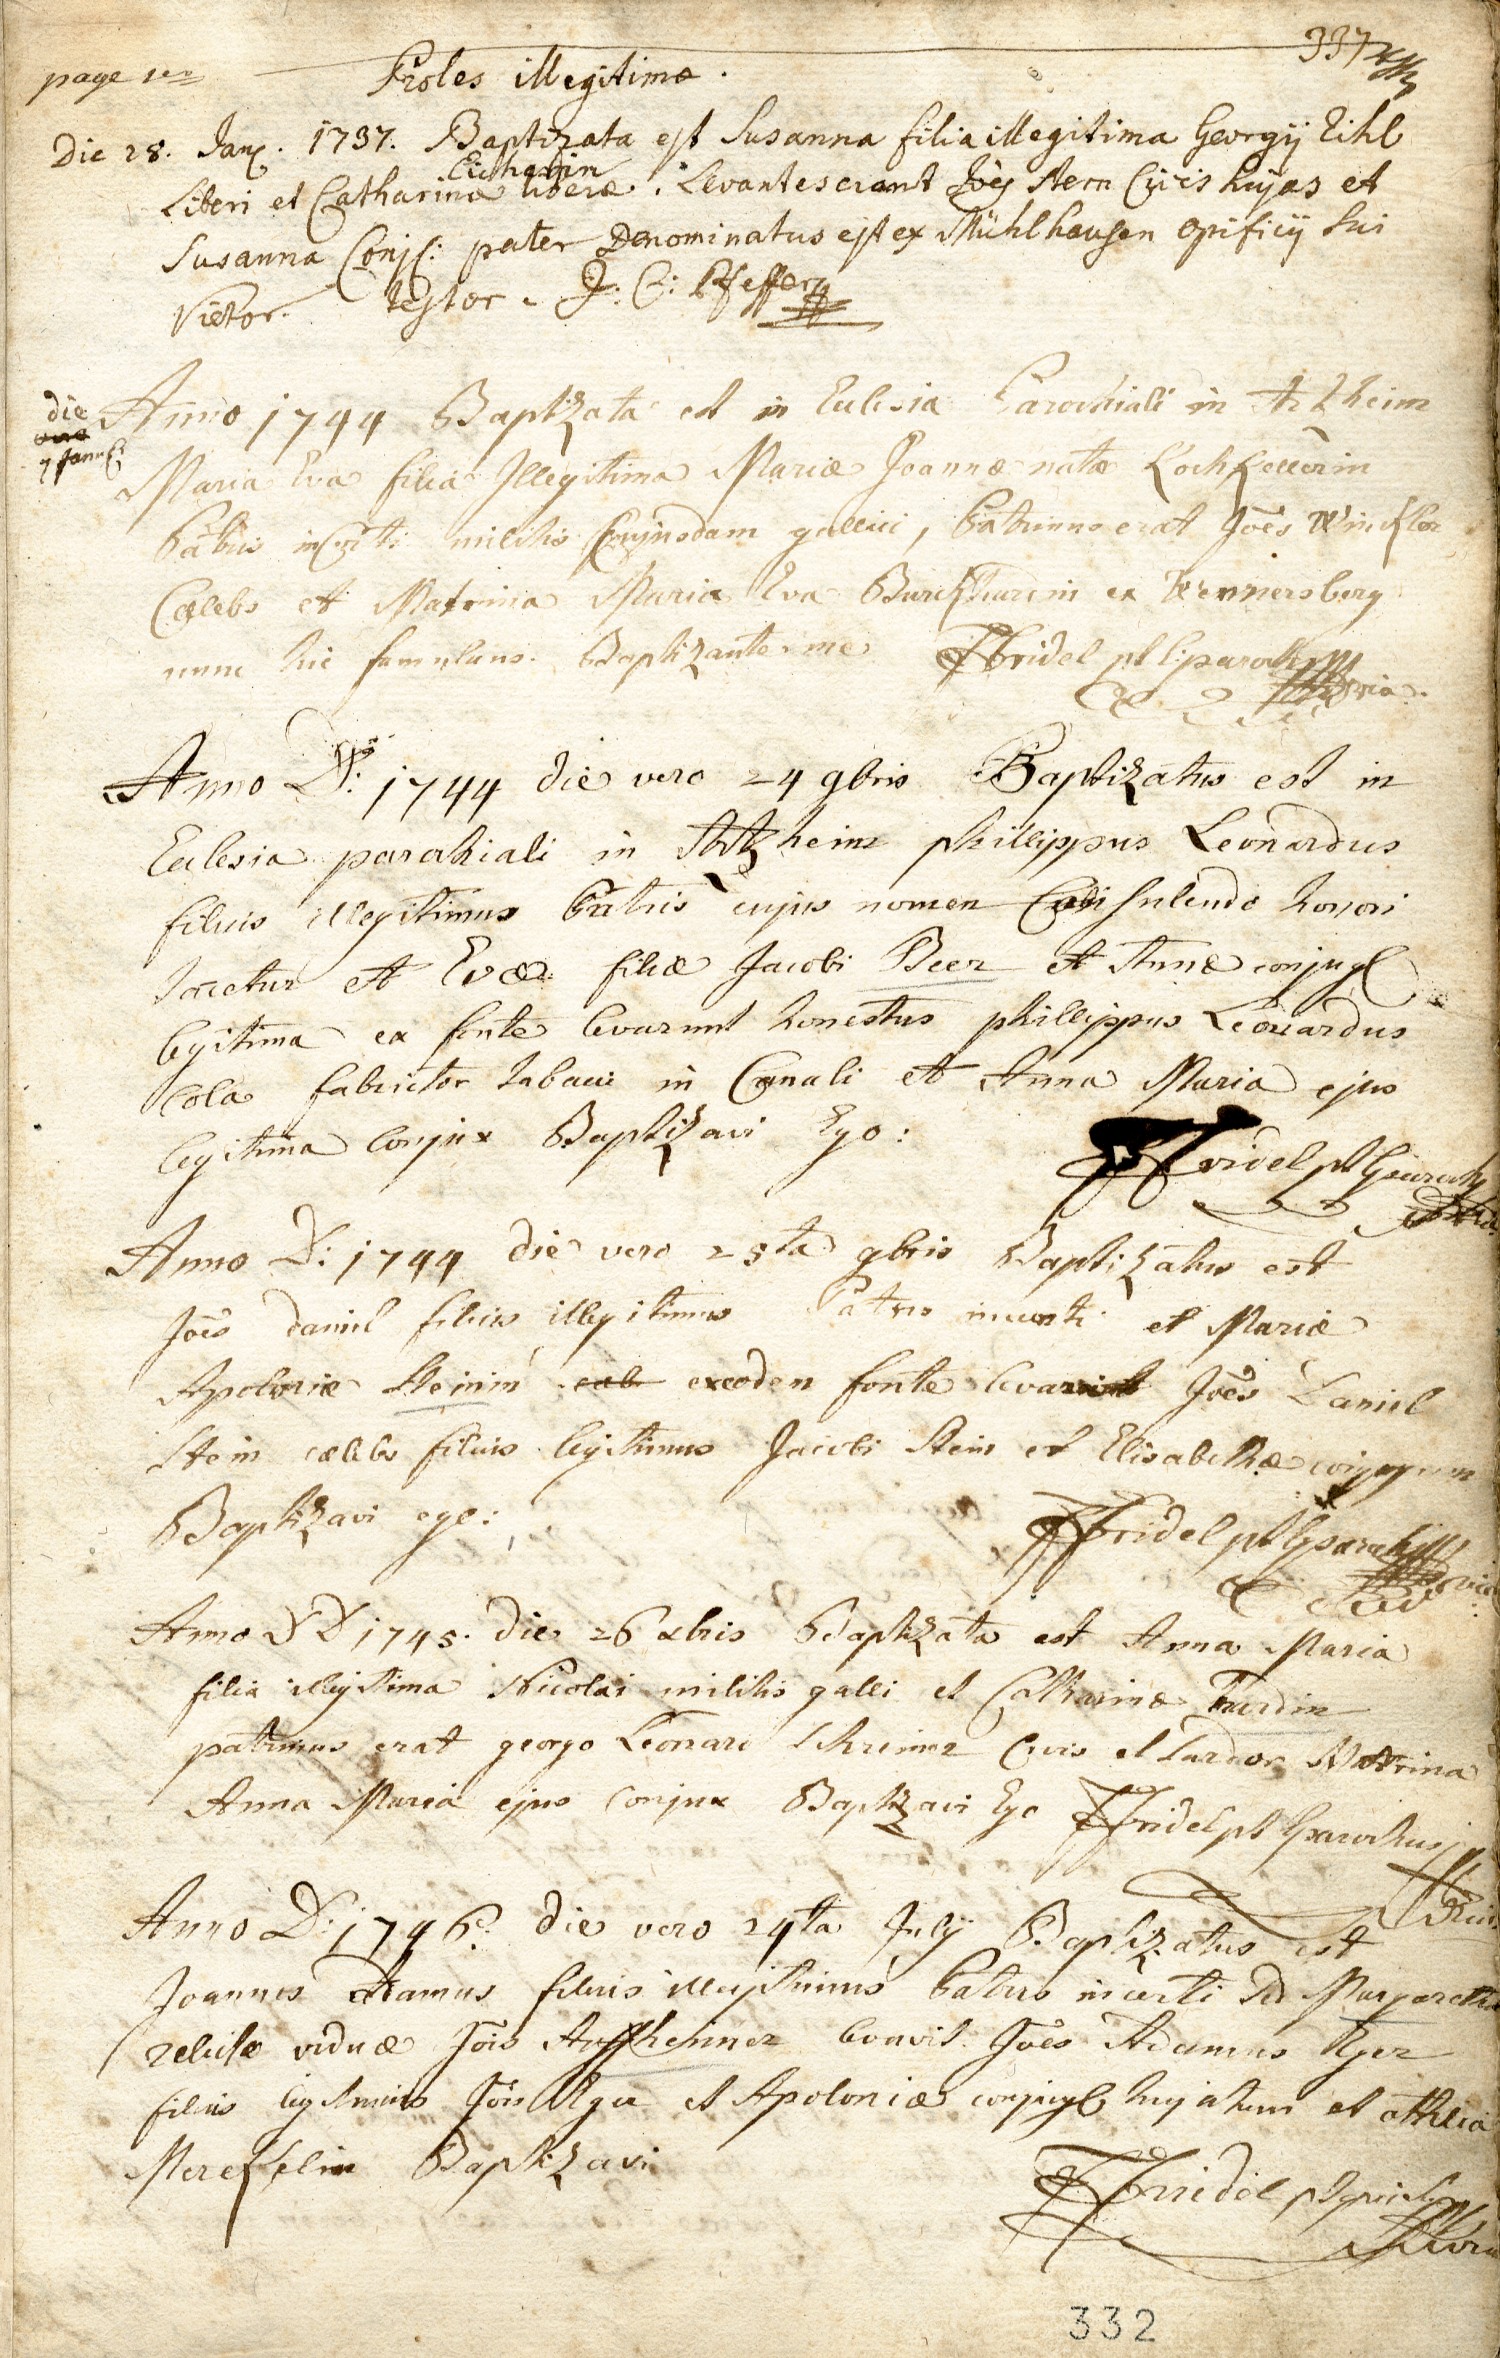 337
page 1er
Proles illegitimæ.
Die 28. Jan. 1737. Baptizata est Susanna filia illegitima Georgij Eihl
Liberi et Catharinæ liberæ. Levantes erant Joes Stern Civis hujas et
Susanna Conj: pater Denominatus est ex Mühlhausen opificij sui
Viëtor. testor J: C: Pfeffer
die
7 Janu:
Anno 1744 Baptizata est in Eclesia Parochiali in Artzheim
Maria Eva filia Illegitima Mariæ Joannæ natæ Kochkellerin
Patris incerti militis Cujusdam gallici, Patrinus erat Joes Winckler
Cælebs et Matrina Maria Eva Burckhardin ex Wernersberg
nunc hic famulans. Baptizante me Fridel pt parochus
Anno D: 1744 die vero 24 9bris Baptizatus est in
Eclesia parochiali in Artzheim phillippus Leonardus
filius illegitimus Patris cujus nomen Consulendo honori
tacetur et Evæ filiæ Jacobi Beer et Annæ conjug
legitima ex fonte levarunt honestus phillippus Leonardus
Cola fabricator tabaci in Canali et Anna Maria ejus
legitima Conjux Baptizavi Ego:
Fridel pt parochus
Anno D: 1744 die vero 25ta 9bris Baptizatus est
Joes daniel filius illegitimus Patris incerti et Mariæ
Apoloniæ Steinin ex eodem fonte levavit Joes Daniel
Stein cælebs filius legitimus Jacobi Stein et Elisabethæ conjugum
Baptizavi ego:
Fridel pt parochus
Anno D 1745. die 26 xbris Baptizata est Anna Maria
filia illegitima Nicolai militis galli et Catharinæ
patrinus erat georg Leonard Schreiner Civis et Sartor Matrina
Anna Maria ejus Conjux Baptizavi Ego Fridel pt parochus
Anno D: 1746. die vero 24ta Julij Baptizatus est
Joannes Adamus filius illegitimus Patris incerti sed Margaretha
relictæ viduæ Jois levavit Joes Adamus Eger
filius legitimus Jois Eger et Apoloniæ conjug hujatum et
Baptizavi
Fridel
332